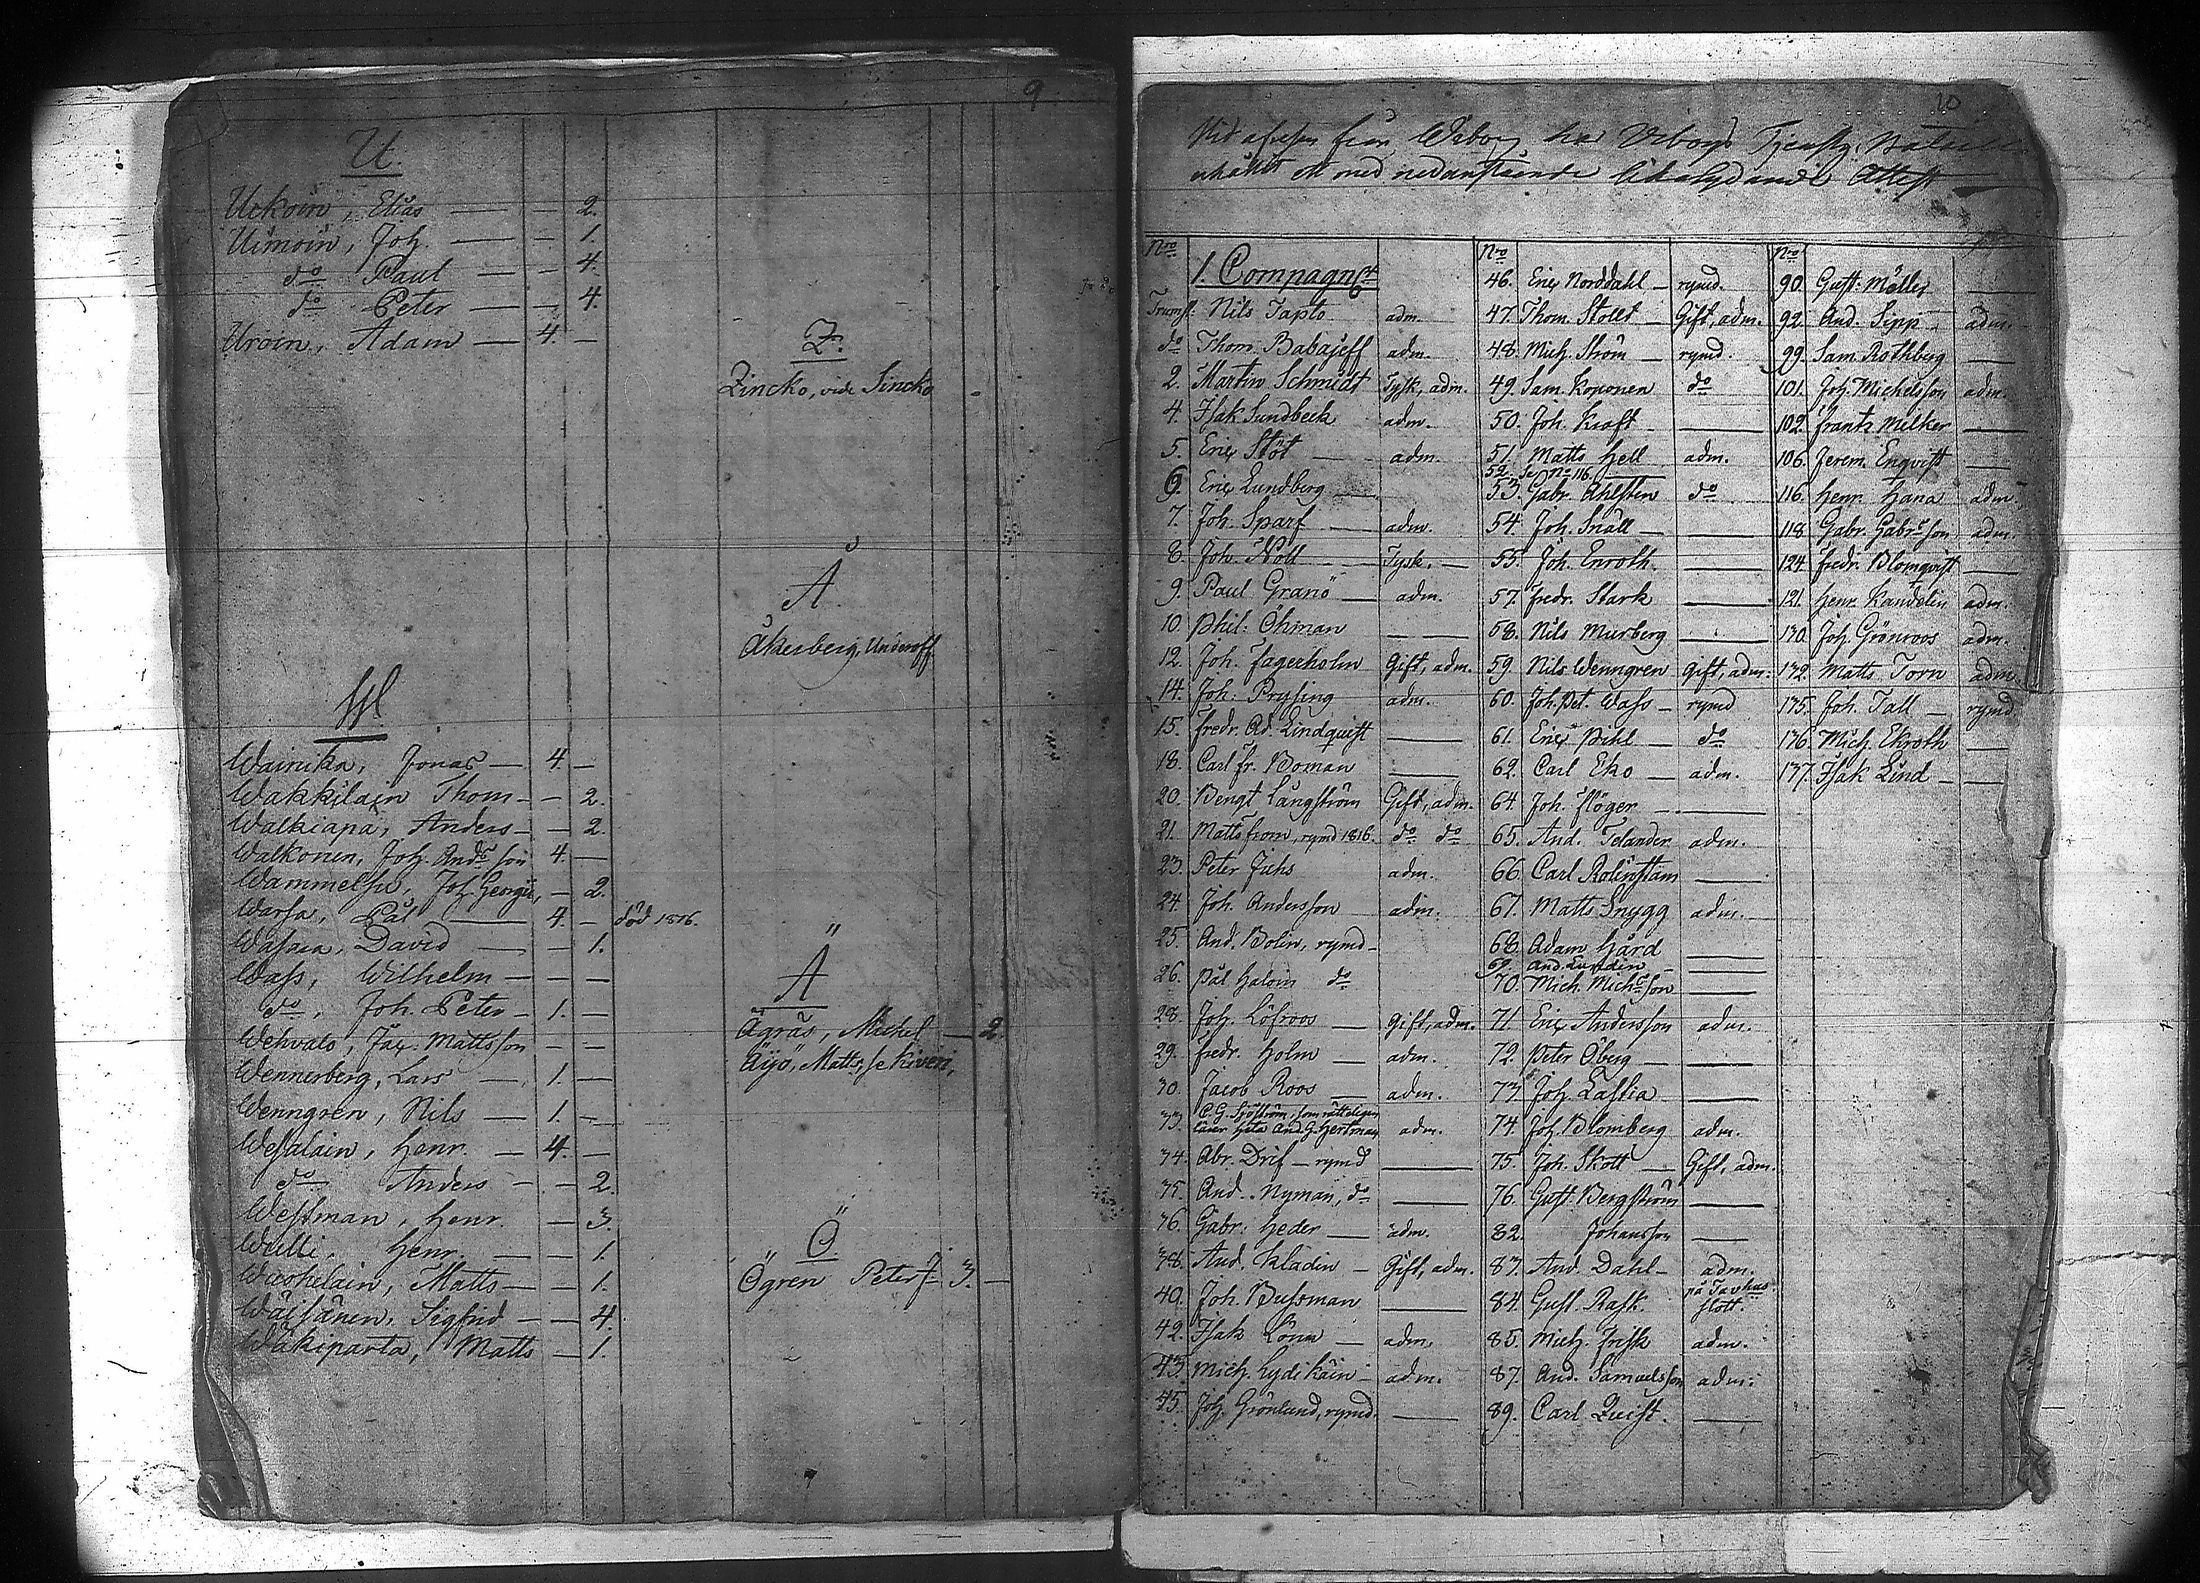 9
U.
Uckoin, Elias — — 2.
Uimoin, Joh. — — 1.
do Paul — — 4.
do Peter — — 4.
Uroin, Adam — 4. —
W
Wainika, Jonas — 4. —
Wakkilain Thom — — 2.
Walkiapä, Anders — — 2.
Walkonen, Joh. Andsson 4. —
Wammelsu, Joh. Georgii, — 2.
Warsa, Pål — 4. — död 1816.
Wasara, David — — 1.
Wass, Wilhelm — — —
do, Joh. Peter — 1. —
Wehvalo, Jac. Mattsson — —
Wennerberg, Lars — 1. —
Wenngren, Nils — 1. —
Wesalain, Henr. — 4. —
do Anders — — 2.
Westman, Henr. — 3.
Wulli, Henr. — — 1.
Wuohelain, Matts — — 1.
Wäisänen, Sigfrid — — 4.
Wäkiparta, Matts — 1.
Z.
Zincko, vide Sincko
Å
Åkerberg, Underoff.
Ä
Ägräs, Michel — 2.
Äijö, Matts, se Kiveri,
Ö
Ögren Peter 3. —
10
Vid afresan från Wiborg har Wiborgs
erhållit ett med nedanstående likalydande Attest
Nro
1. Compagniet
Trumsl: Nils Tapto adm.
do Thom. Babajeff adm.
2. Martin Schmidt Tysk, adm.
4. Isak Sundbeck adm.
5. Eric Stöt — adm.
6. Eric Lundberg —
7. Joh. Sparf — adm.
8. Joh. Noll — Tysk. —
9. Paul Granö — adm.
10. Phil: Öhman — —
12. Joh. Fagerholm Gift, adm.
14. Joh. Prysing adm.
15. Fredr. Ad. Lindquist —
18. Carl Fr. Boman —
20. Bengt Långström Gift, adm.
21. Matts From, rymd 1816. do do
23. Peter Juhs adm.
24. Joh. Andersson adm.
25. And. Bolin, rymd —
26. Pål Haloin do
28. Joh. Löfroos — Gift, adm.
29. Fredr. Holm — adm.
30. Jacob Roos — adm.
33. C. G. Sjöström, som rätteligen
lärer heta And. G. Hertman adm.
34. Abr. Drif — rymd —
35. And. Nyman, do —
36. Gabr: Heder — adm.
38. And. Kladin — Gift, adm.
40. Joh. Bussman —
42. Isak Lönn — adm.
43. Mich. Lydikäin — adm.
45. Joh. Grönlund, rymd. —
Nro
46. Eric Norddahl — rymd.
47. Thom. Stollt — Gift, adm.
48. Mich. Ström — rymd.
49. Sam. Koponen do
50. Joh. Kraft — —
51. Matts Hell adm.
52. Se No 116 —
53. Gabr. Ahlsten do
54. Joh. Snäll — —
55. Joh. Enroth. —
57. Fredr. Stark —
58. Nils Murberg —
59. Nils Wenngren Gift, adm.
60. Joh. Pet. Wass — rymd
61. Eric Pihl — do
62. Carl Eko — adm.
64. Joh. Flöger — —
65. And. Telander adm.
66. Carl Rolinstam —
67. Matts Snygg adm. —
68. Adam Hård —
69. And. Lundin —
70. Mich. Michsson —
71. Eric Andersson adm.
72. Peter Öberg — —
73. Joh. Lastia —
74. Joh. Blomberg adm.
75. Joh. Skott — Gift, adm.
76. Gust. Bergström —
82. Johansson —
83. And. Dahl — adm.
84. Gust. Rask. på Tavhus slott.
85. Mich. Frisk adm.
87. And. Samuelsson adm.
89. Carl Quist. —
Nro
90. Gust: Möller —
92. And. Sipp — adm.
99. Sam. Rothberg —
101. Joh. Michelsson adm.
102. Frantz Melker —
106. Jerem. Enqvist —
116. Henr. Hana adm.
118. Gabr. Gabrsson adm.
124. Fredr. Blomqvist —
121. Henr. Kandelin adm.
130. Joh. Grönroos adm.
132. Matts Torn adm.
135. Joh. Tall — rymd.
136. Mich. Ekroth —
137. Isak Lind — —